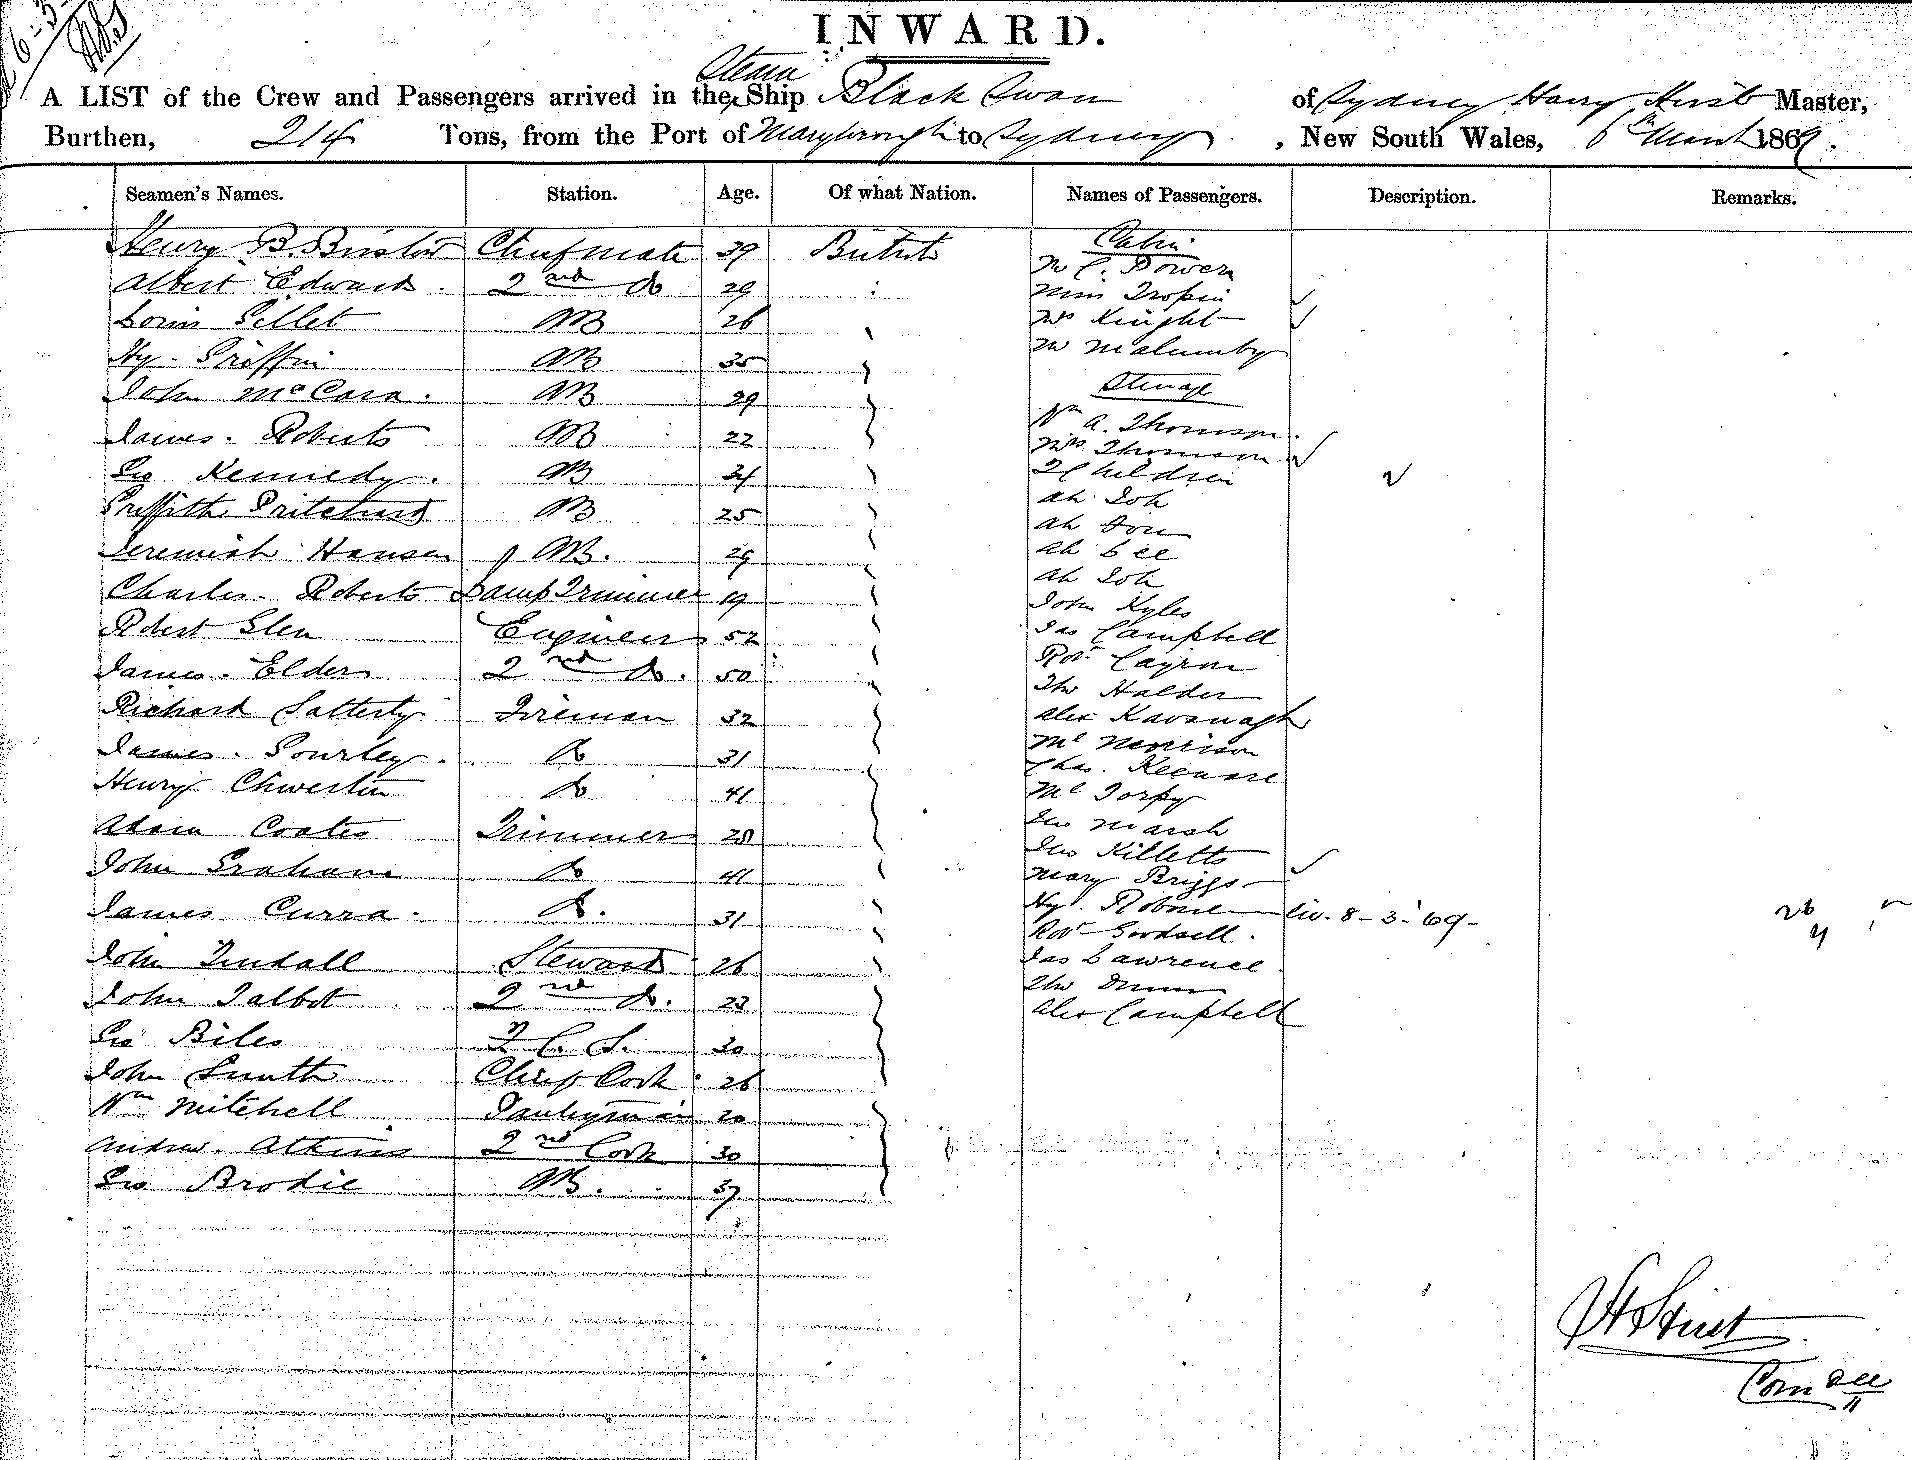 INWARD.
A LIST of the Crew and Passengers arrived in the Steam Ship Black Swan of Sydney Harry Hirst Master,
Burthen, 214 Tons, from the Port of Maryborough to Sydney, New South Wales, 6th March 1869.
Seamen's Names. Station. Age. Of what Nation. Names of Passengers. Description. Remarks.
Henry B. Bristow Chief mate 39 British
Albert Edwards 2nd Do 29
Louis Gillet AB 26
Hy. Griffin AB 35
John McCara AB 29
James Roberts AB 22
Geo Kennedy AB 24
Griffith Pritchard AB 25
Jeremiah Hansen AB. 29
Charles Roberts Lamp Trimmer 19
Robert Glen Engineer 52
James Elder 2nd Do. 50
Richard Latterty Fireman 32
James Gourley Do 31
Henry Do 41
Adam Coates Trimmer 28
John Graham Do 41
James Curra Do. 31
John Tindall Steward 26
John Talbot 2nd Do. 23
Geo Biles F. C. S. 30
John Smith Chief Cook 26
Wm Mitchell Pantryman 20
Andrew Atkins 2nd Cook 30
Geo Brodie AB. 37
Cabin
Mr C. Bowen
Miss
Mrs Knight
Mr
Steerage
Wm A. Thomson
Mrs Thomson
2 Children
Ah Loh
Ah Fou
Ah Lee
Ah Loh
John Kyles
Jas Campbell
Robt Cayrne
Tho Halder
Alex Kavanagh
Ml Morrison
Chas. Keenare
Ml Torpy
Jno Marsh
Jno Killetts
Mary Briggs
Hy. liv. 8-3-69
Robt Goodsell
Jas Lawrence
Tho Dunn
Alex Campbell
26
4
H Hirst
Com